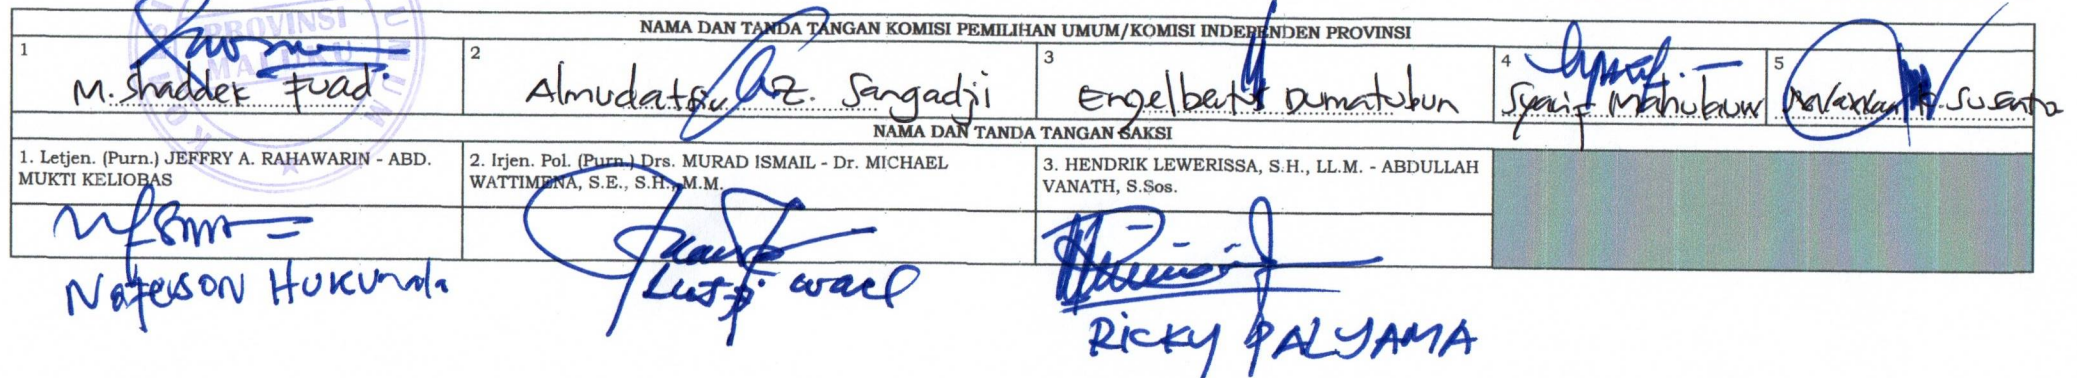 PROVINSI
MALUKU
NAMA DAN TANDA TANGAN KOMISI PEMILIHAN UMUM/KOMISI INDEPENDEN PROVINSI
1 2 3 4 5
M. Shaddek Fuad Almudatsir Z. Sangadji Engelbertus Dumatubun Syarif Mahulauw
NAMA DAN TANDA TANGAN SAKSI
1. Letjen. (Purn.) JEFFRY A. RAHAWARIN - ABD.
MUKTI KELIOBAS
2. Irjen. Pol. (Purn.) Drs. MURAD ISMAIL - Dr. MICHAEL
WATTIMENA, S.E., S.H., M.M.
3. HENDRIK LEWERISSA, S.H., LL.M. - ABDULLAH
VANATH, S.Sos.
HUKUNALA
wael
RICKY PALYAMA